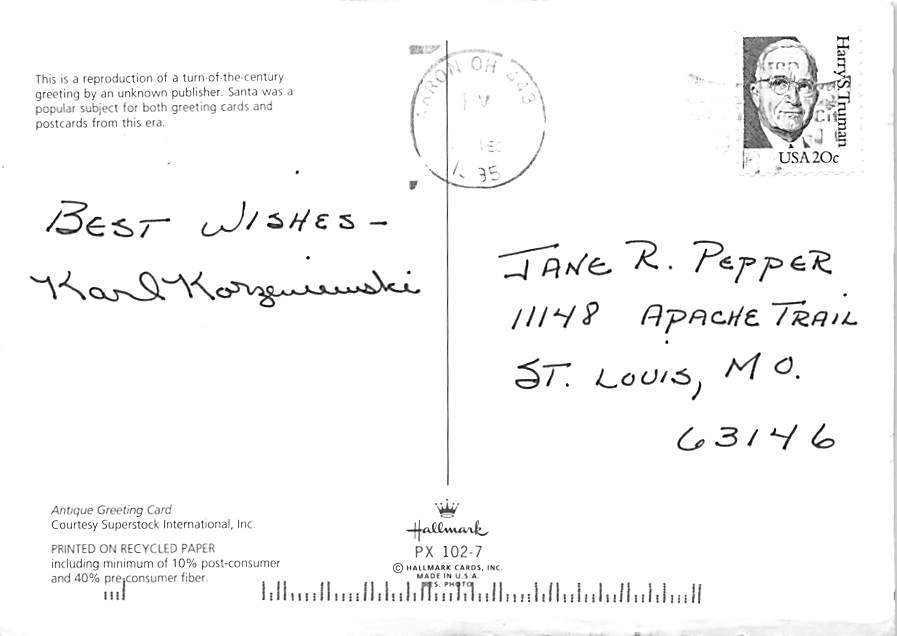 This is a reproduction of a turn-of-the-century
greeting by an unknown publisher. Santa was a
popular subject for both greeting cards and
postcards from this era.
BEST WISHES –
Karl Korzeniewski
AKRON OH 443
PM
DEC
Harry S. Truman
USA 20c
JANE R. PEPPER
11148 APACHE TRAIL
ST. LOUIS, MO.
63146
Antique Greeting Card
Courtesy Superstock International, Inc.
PRINTED ON RECYCLED PAPER
including minimum of 10% post-consumer
and 40% pre-consumer fiber.
Hallmark
PX 102-7
© HALLMARK CARDS, INC.
MADE IN U.S.A.
PHOTO